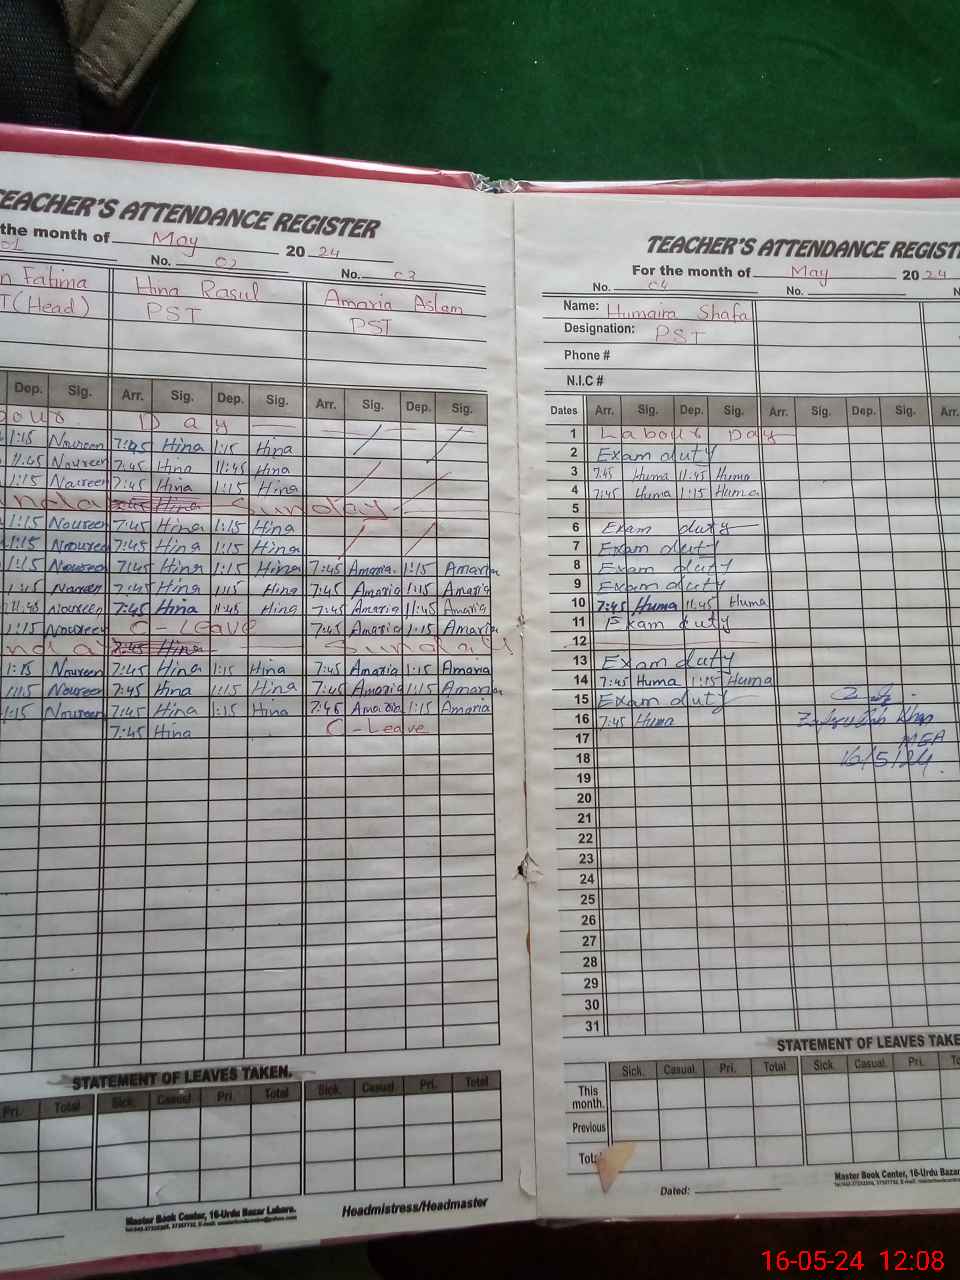 TEACHER'S ATTENDANCE REGISTER
the month of May 2024
01 No. 02 No. 03
n Fatima Hina Rasul Amaria Aslam
T(Head) PST PST
Dep. Sig. Arr. Sig. Dep. Sig. Arr. Sig. Dep. Sig.
bour Day
1:15 Noureen 7:45 Hina 1:15 Hina
11:45 Noureen 7:45 Hina 11:45 Hina
1:15 Noureen 7:45 Hina 1:15 Hina
nda 7:45 Hina Sunday
1:15 Noureen 7:45 Hina 1:15 Hina
1:15 Noureen 7:45 Hina 1:15 Hina
1:15 Noureen 7:45 Hina 1:15 Hina 7:45 Amaria 1:15 Amaria
1:15 Noureen 7:45 Hina 1:15 Hina 7:45 Amaria 1:15 Amaria
11:45 Noureen 7:45 Hina 11:45 Hina 7:45 Amaria 11:45 Amaria
1:15 Noureen C-Leave 7:45 Amaria 1:15 Amaria
nda 7:45 Hina Sunday
1:15 Noureen 7:45 Hina 1:15 Hina 7:45 Amaria 1:15 Amaria
1:15 Noureen 7:45 Hina 1:15 Hina 7:45 Amaria 1:15 Amaria
1:15 Noureen 7:45 Hina 1:15 Hina 7:45 Amaria 1:15 Amaria
7:45 Hina C-Leave
STATEMENT OF LEAVES TAKEN.
Pri. Total Sick. Casual Pri. Total Sick. Casual. Pri. Total
Master Book Center, 16-Urdu Bazar Lahore.
Headmistress/Headmaster
TEACHER'S ATTENDANCE REGIST
For the month of May 2024
No. 04 No. N
Name: Humaira Shafa
Designation: PST
Phone #
N.I.C #
Dates Arr. Sig. Dep. Sig. Arr. Sig. Dep. Sig. Arr.
1 Labour Day
2 Exam duty
3 7:45 Huma 11:45 Huma
4 7:45 Huma 1:15 Huma
5
6 Exam duty
7 Exam duty
8 Exam duty
9 Exam duty
10 7:45 Huma 11:45 Huma
11 Exam duty
12
13 Exam duty
14 7:45 Huma 1:15 Huma
15 Exam duty
16 7:45 Huma Khan
17 MEA
18 16/5/24
19
20
21
22
23
24
25
26
27
28
29
30
31
STATEMENT OF LEAVES TAKE
Sick. Casual. Pri. Total Sick. Casual. Pri. To
This month.
Previous
Total
Master Book Center, 16-Urdu Bazar
Dated:
16-05-24 12:08